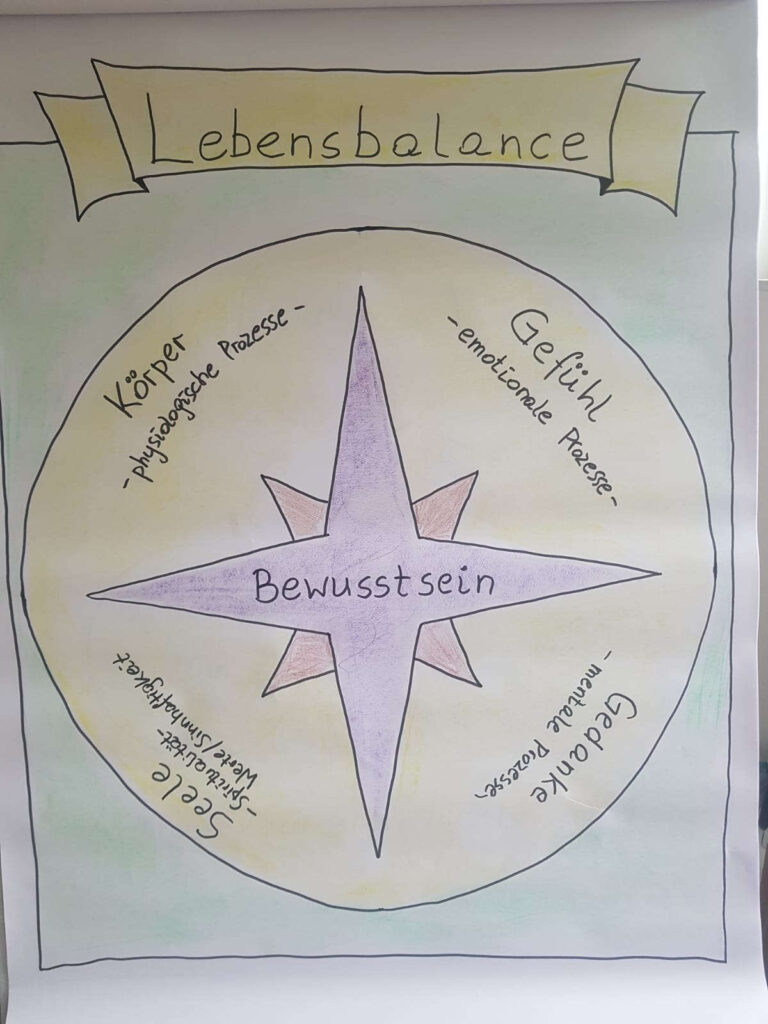 Lebensbalance
Körper
-physiologische Prozesse-
Gefühl
-emotionale Prozesse-
Bewusstsein
Seele
-Spiritualität-
Werte/Sinnhaftigkeit
Gedanke
-mentale Prozesse-